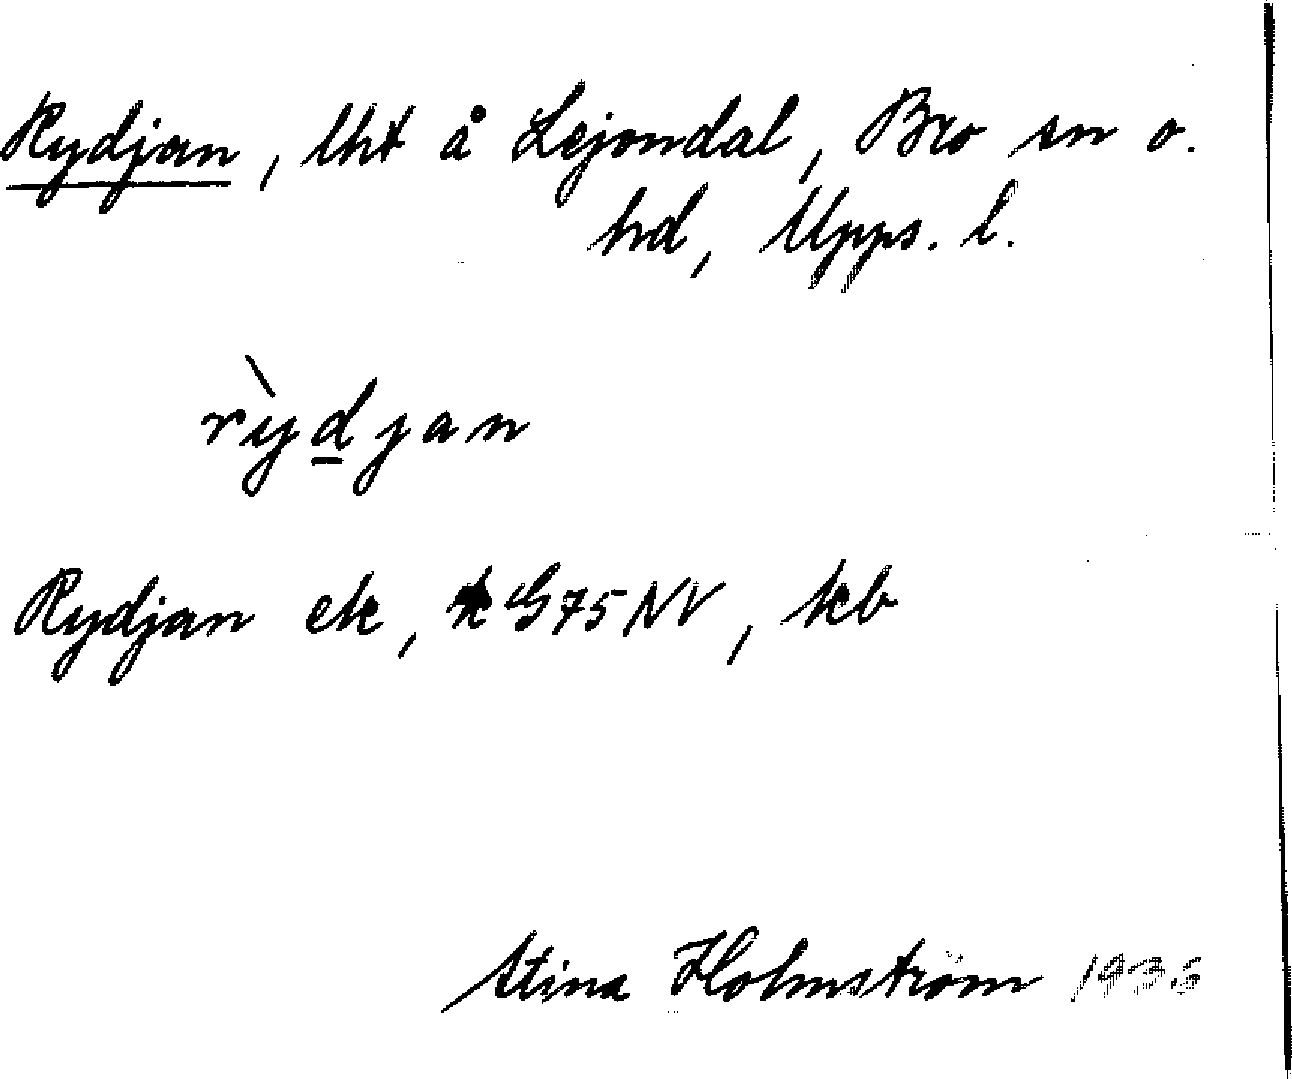 Rydjan, lht å Lejondal, Bro sn o.
hd, Upps. l.
rỳdjan
Rydjan ek, G75NV, kb
Stina Holmström 1935